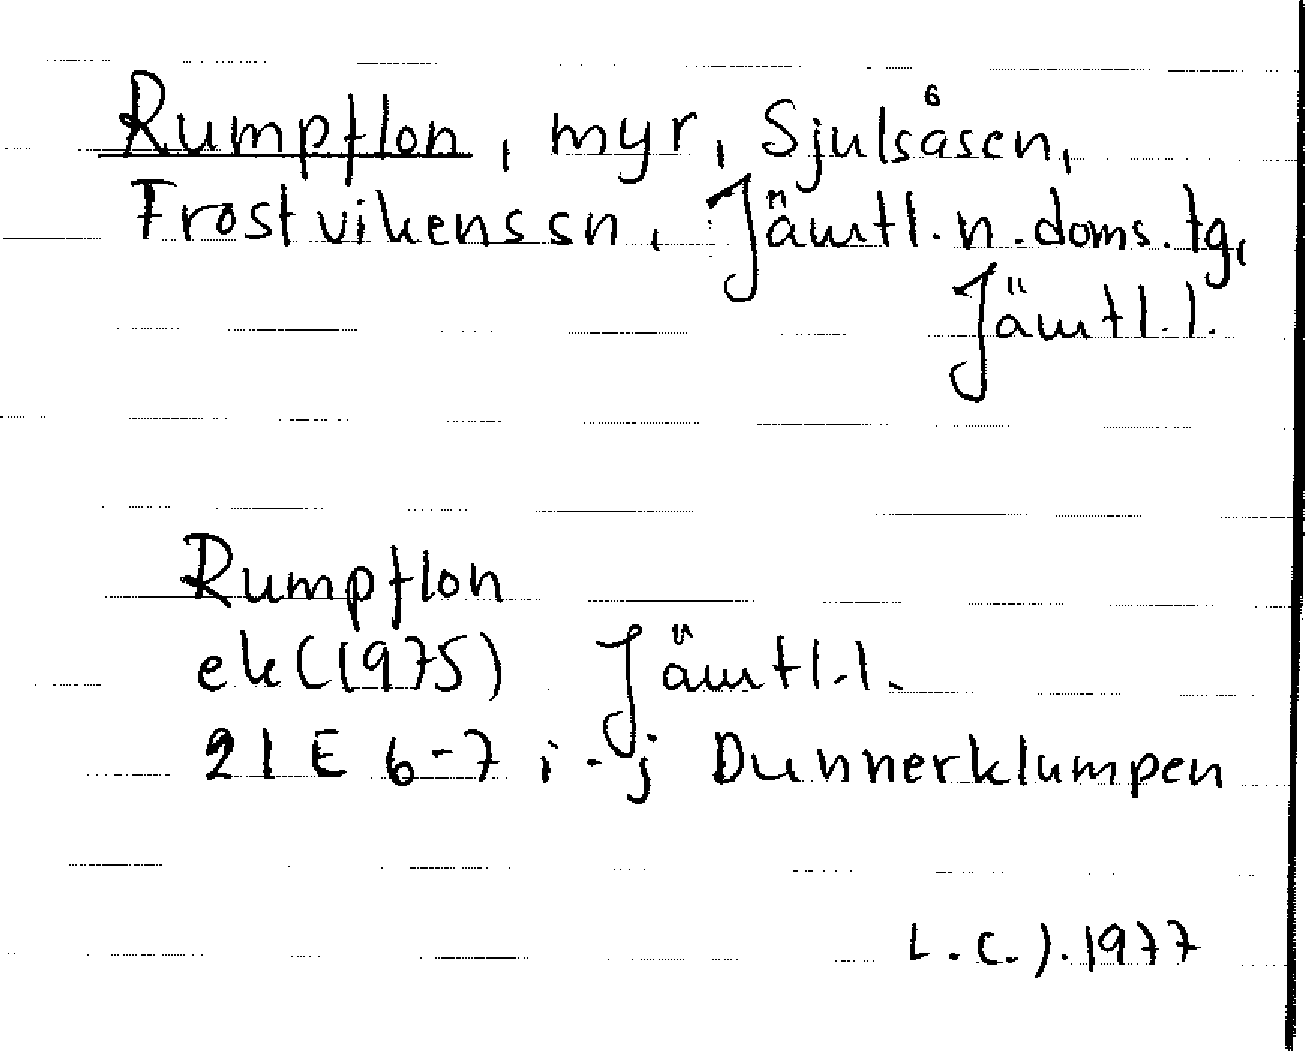 Rumpflon, myr, Sjulsåsen,
Frostvikens sn, Jämtl. n. doms. tg,
Jämtl. l.
Rumpflon
ek (1975) Jämtl. l.
21 E 6-7 i-j Dunnerklumpen
L.C.J. 1977